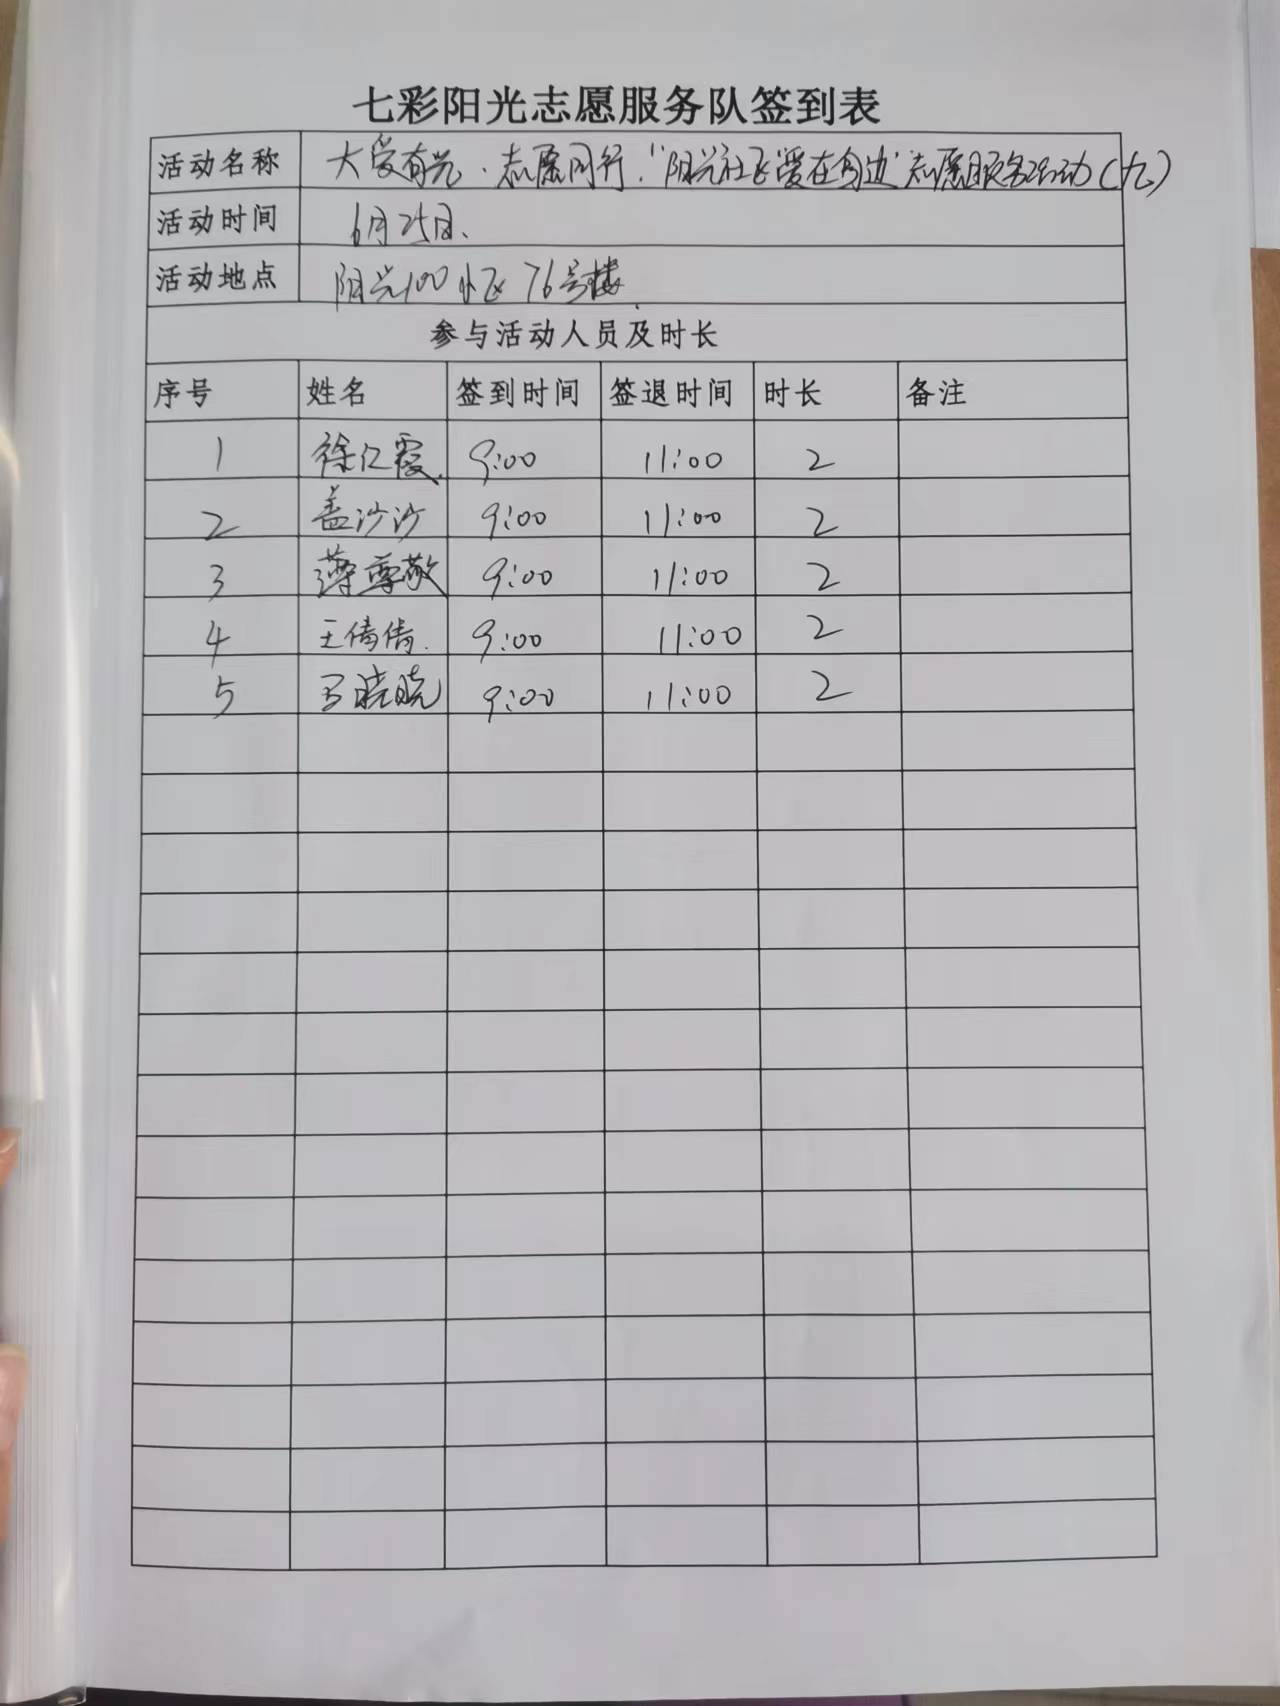 七彩阳光志愿服务队签到表
活动名称 大爱有光·志愿同行.“阳光社区爱在身边”志愿服务活动(九)
活动时间 6月25日、
活动地点 阳光100小区76号楼
参与活动人员及时长
序号 姓名 签到时间 签退时间 时长 备注
1 徐仁霞 9:00 11:00 2
2 盖沙沙 9:00 11:00 2
3 尊敬 9:00 11:00 2
4 王倩倩 9:00 11:00 2
5 晓晓 9:00 11:00 2